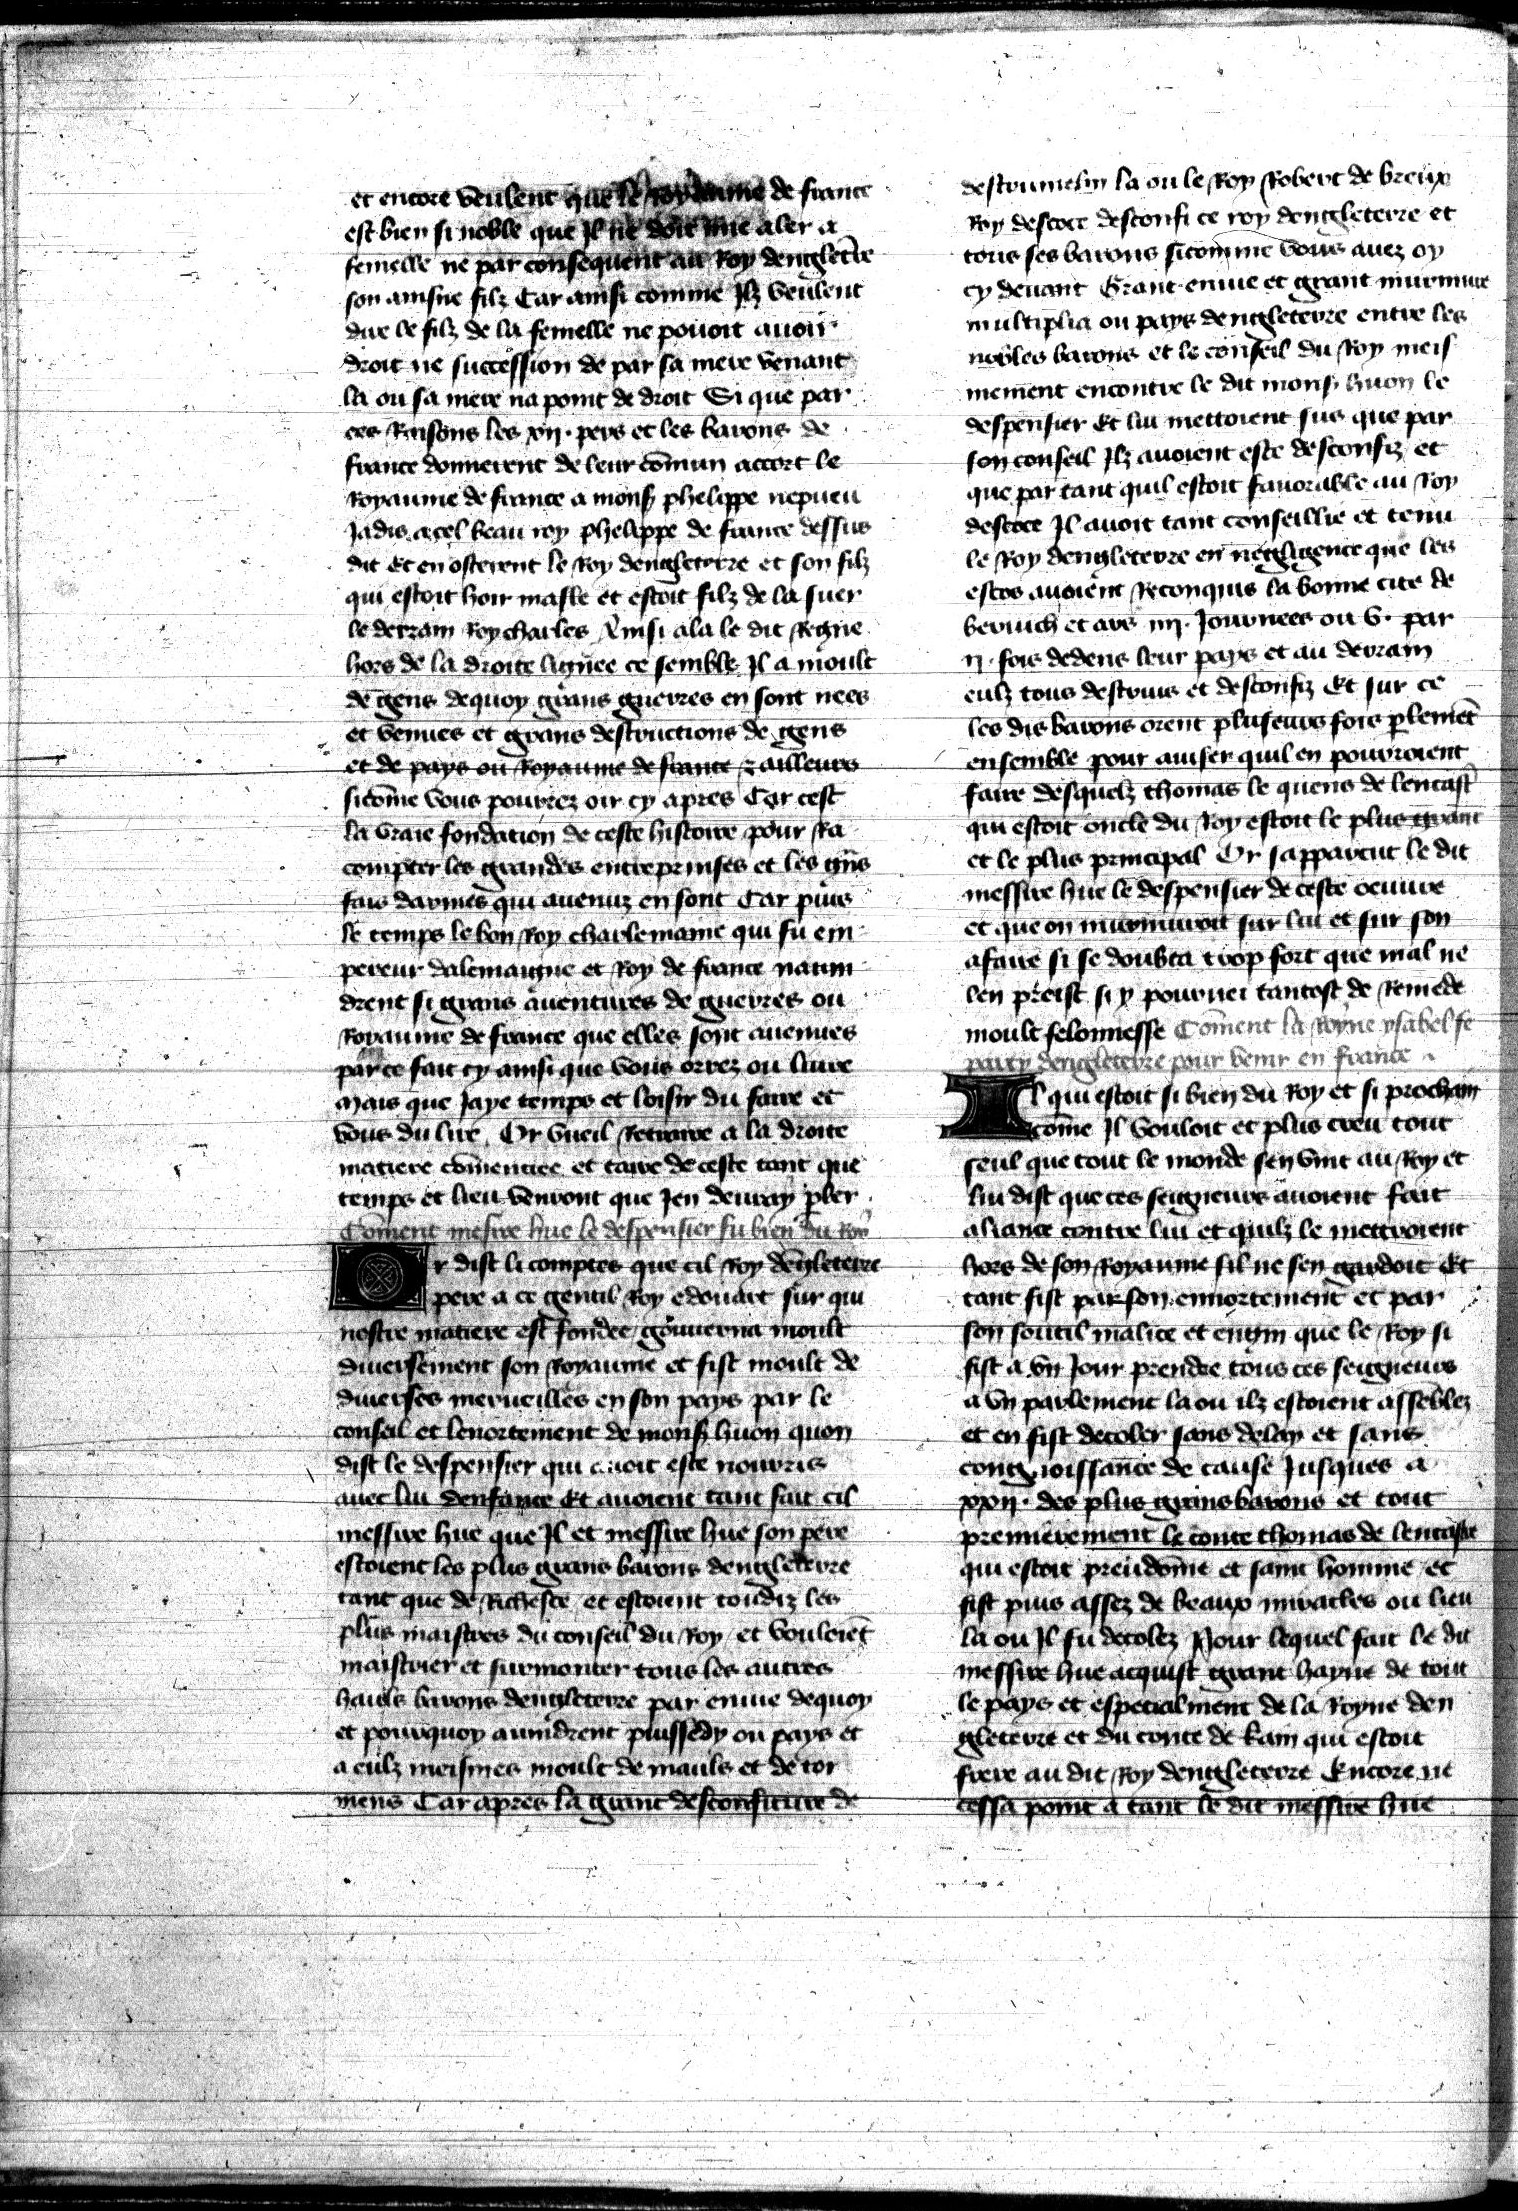 et encore veulent que le royaume de france
est bien si noble que Il ne doit mie aler a
femelle ne par consequent au Roy denglet̄re
son ainsne filz Car ainsi comme Ilz veulent
dire le filz de la femelle ne pouoit auoir
droit ne succession de par sa mere venant
la ou sa mere na point de droit Si que par
ces Raisons les xij. pers et les barons de
france donnerent de leur cōmun accort le
Royaume de france a mons phelippe nepueu
Jadis a cel beau roy phelippe de france dessus
dit Et en osterent le Roy dengleterre et son filz
qui estoit hoir masle et estoit filz de la suer
le derrain Roy charles Ainsi ala le dit Regne
hors de la droite lignee ce semble Il a moult
de gens dequoy grans guerres en sont nees
et venues et grans destructions de gens
et de pays ou Royaume de france et ailleurs
sicōme vous pourrez oir cy apres Car cest
la vraie fondation de ceste histoire pour Ra
compter les grandes entreprinses et les gr̄ns
fais darmes qui auenuz en sont Car puis
le temps le bon Roy charlemaine qui fu em
pereur dalemaigne et Roy de france nauin
drent si grans auentures de guerres ou
Royaume de france que elles sont auenues
par ce fait cy ainsi que vous orrez ou liure
Mais que Jaye temps et loisir du faire et
vous du lire Or vueil Retraire a la droite
matiere cōmenciee et taire de ceste tant que
temps et lieu venront que Jen deuray p̄ler
Cōment mesire hue le despensier fu bien du Roy
Or dist li comptes que cil Roy dēgleterre
pere a ce gentil Roy edouart sur qui
nostre matiere est fondee gouuerna moult
diuersement son Royaume et fist moult de
diuerses merueilles en son pays par le
conseil et lenortement de mons huon quon
dist le despensier qui auoit este nourris
auec lui denfance Et auoient tant fait cil
messire hue que Il et messire hue son pere
estoient les plus grans barons dengleterre
tant que de Richesce et estoient toudiz les
plus maistres du conseil du Roy et vouloiēt
maistrier et surmonter tous les autres
hauls barons dengleterre par enuie dequoy
et pourquoy auindrent puissedy ou pays et
a eulz meismes moult de mauls et de tor
mens Car apres la grant desconfiture de
destrumelin la ou le Roy Robert de breux
Roy descoce desconfi ce roy dengleterre et
tous ses barons sicomme vous auez oy
cy deuant Grant enuie et grant murmure
multiplia ou pays dengleterre entre les
nobles barons et le conseil du Roy meis
mement encontre le dit mons huon le
despensier Et lui mettoient sus que par
son conseil Ilz auoient este desconfiz et
que par tant quil estoit fauorable au Roy
descoce Il auoit tant conseillie et tenu
le Roy dengleterre en negligence que les
escos auoient Reconquis la bonne cite de
beruich et ars iiij. Journees ou v. par
ij. fois dedens leur pays et au derrain
eulz tous destruis et desconfiz Et sur ce
les dis barons orent pluseurs fois p̄lemēt
ensemble pour auiser quil en pourroient
faire desquelz thomas le quens de lencast̄
qui estoit oncle du Roy estoit le plus grant
et le plus principal Or sapparcut le dit
messire hue le despensier de ceste oeuure
et que on murmuroit sur lui et sur son
afaire si se doubta trop fort que mal ne
len preist si y pouruei tantost de Remede
moult felonnesse Cōment la Royne ysabel se
party dengleterre pour venir en france
Il qui estoit si bien du Roy et si prochain
cōme Il vouloit et plus creu tout
seul que tout le monde sen vint au Roy et
lui dist que ces seigneurs auoient fait
aliance contre lui et quilz le mettroient
hors de son Royaume sil ne sen gardoit Et
tant fist par son ennortement et par
son soutil malice et engin que le Roy si
fist a vn Jour prendre tous ces seigneurs
a vn parlement la ou ilz estoient assēblez
et en fist decoler sans delay et sans
congnoissance de cause Jusques a
xxij. des plus grans barons et tout
premierement le conte thomas de lencastre
qui estoit preudōme et saint homme et
fist puis assez de beaux miracles ou lieu
la ou Il fu decolez Pour lequel fait le dit
messire hue acquist grant hayne de tout
le pays et especialment de la Royne den
gleterre et du conte de kain qui estoit
frere au dit Roy dengleterre Encore ne
cessa point a tant le dit messire hue